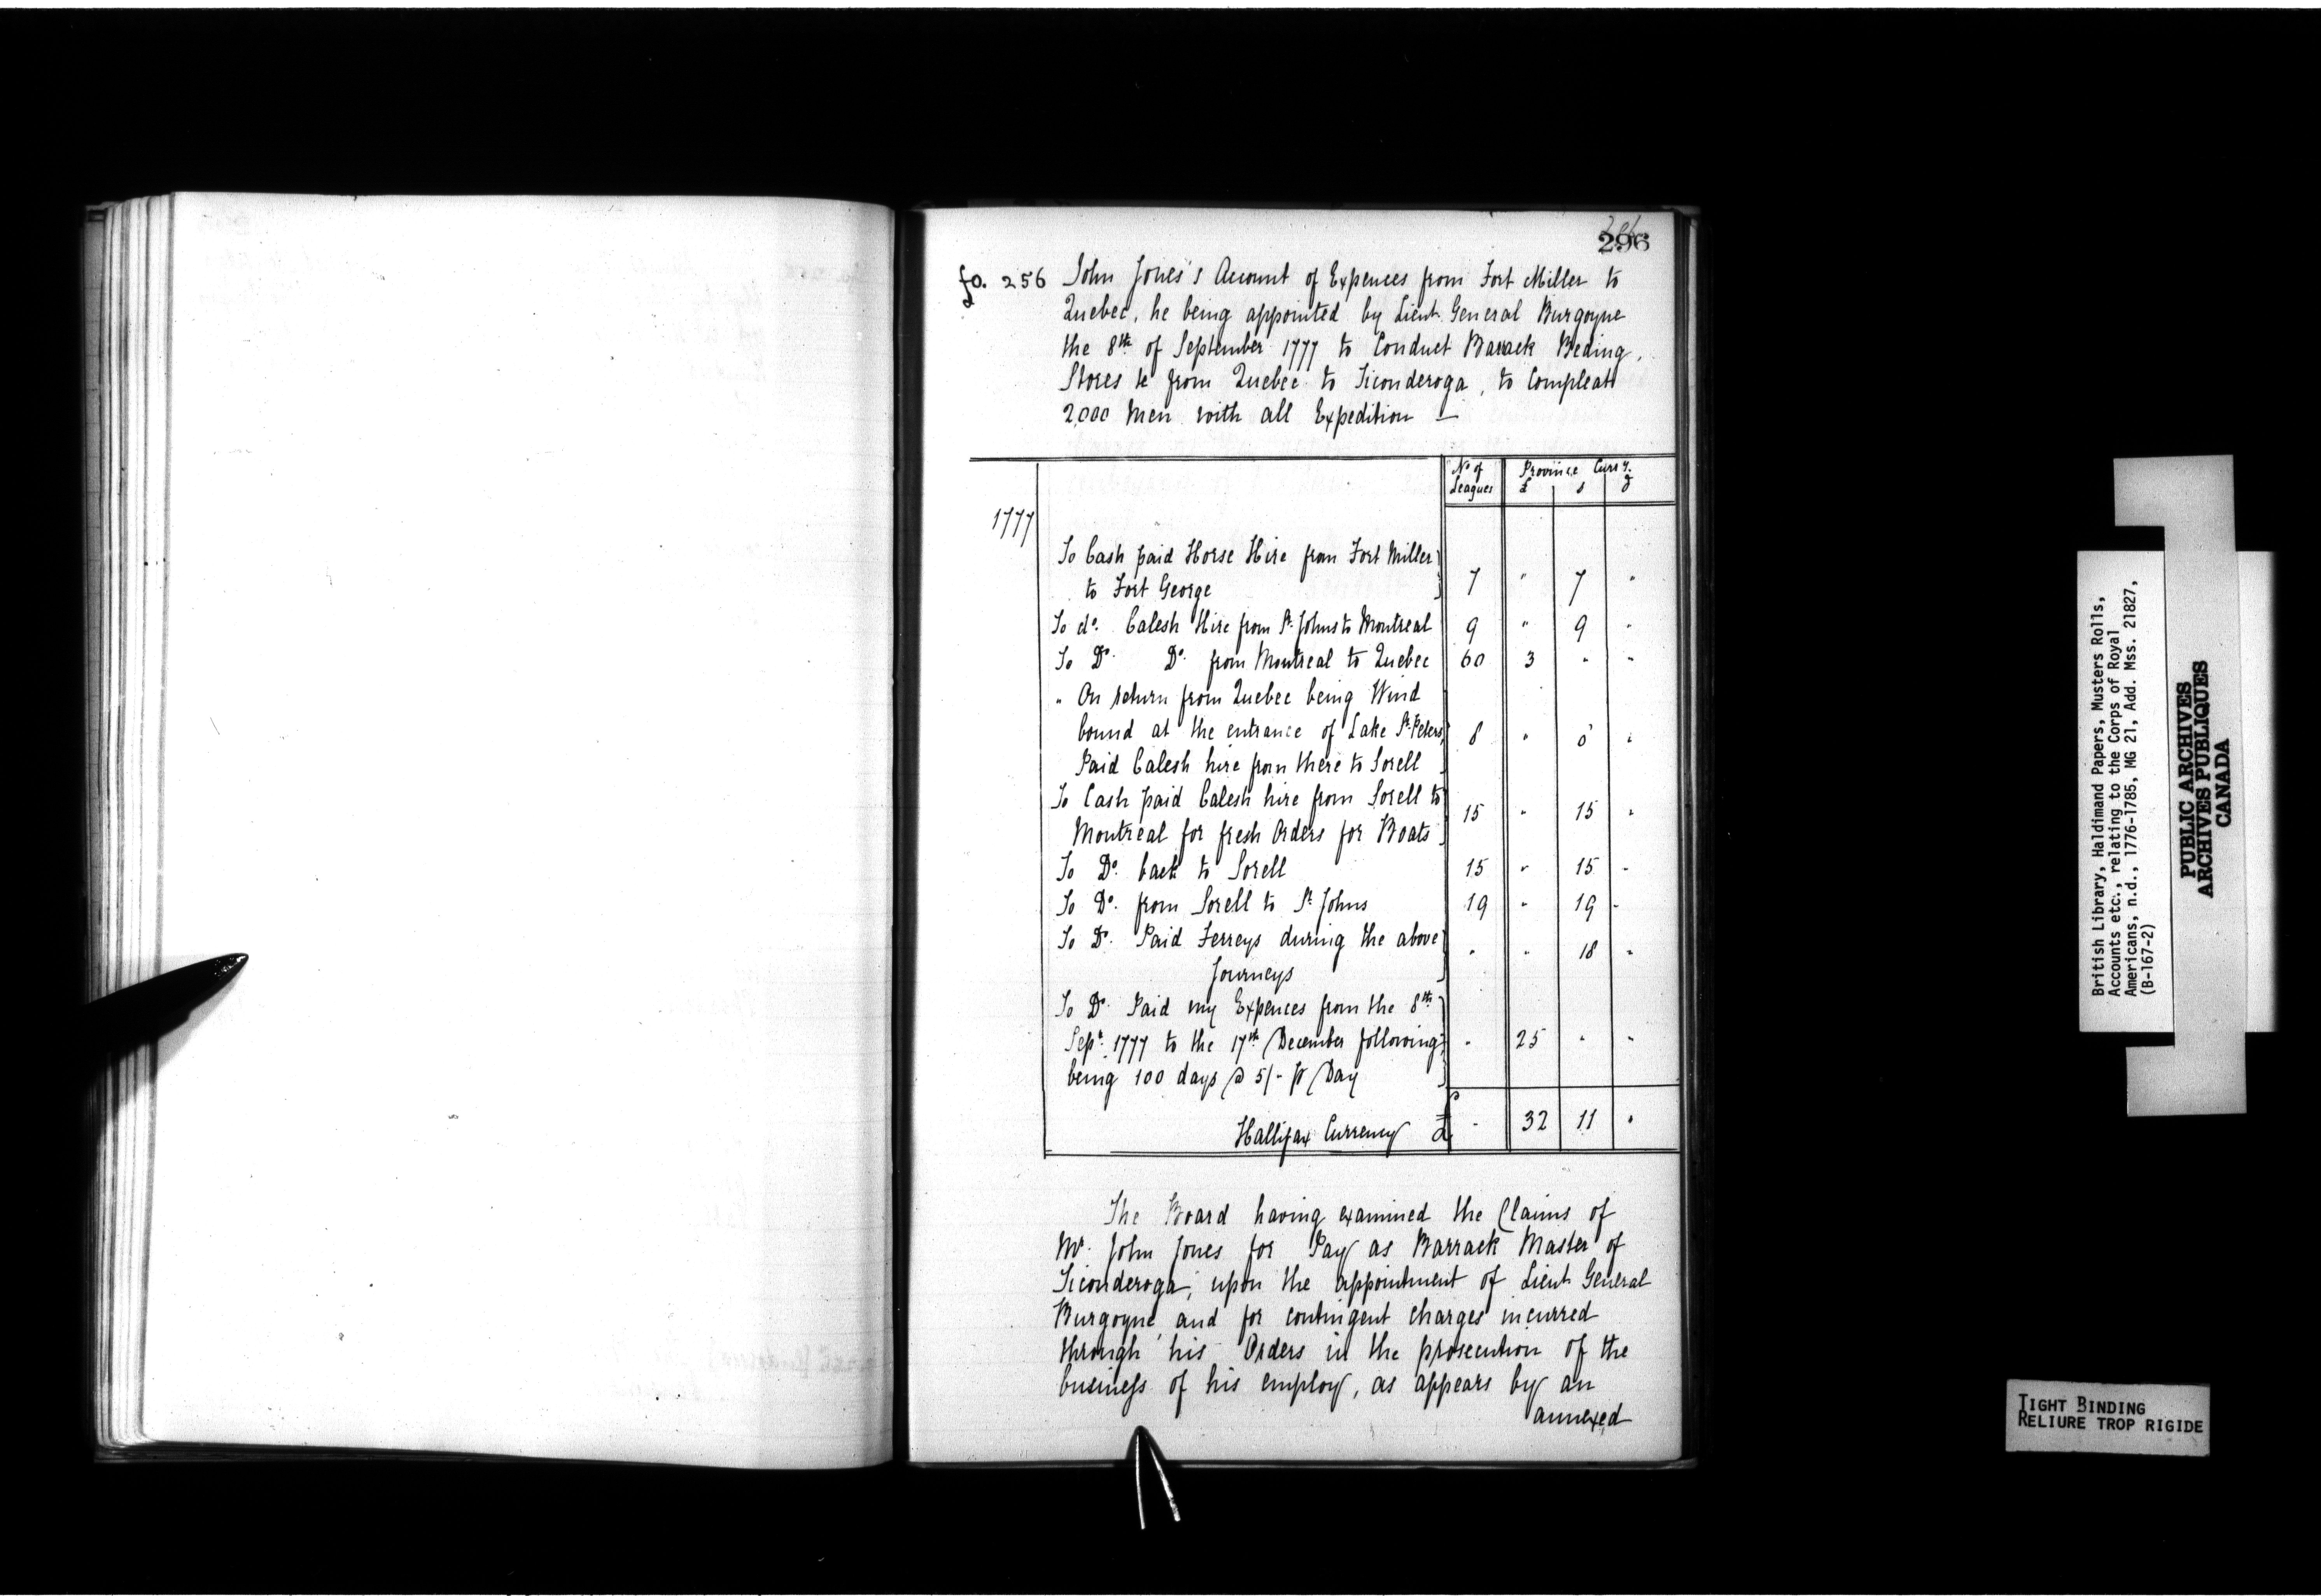 296
fo. 256 John Jones's Account of Expences from Fort Miller to
Quebec, he being appointed by Lieut. General Burgoyne
the 8th of September 1777 to Conduct Barrack Beding,
Stores &c from Quebec to Ticonderoga, to Compleat
2,000 Men with all Expedition —
No of Leagues Province Curry.
£ s d
1777
To Cash paid Horse Hire from Fort Miller
to Fort George 7 " 7 "
To do. Calesh Hire from St. Johns to Montreal 9 " 9 "
To Do. Do. from Montreal to Quebec 60 3 " "
" On return from Quebec being Wind
bound at the entrance of Lake St. Peters, 8 " 8 "
Paid Calesh hire from there to Sorell
To Cash paid Calesh hire from Sorell to
Montreal for fresh Orders for Boats 15 " 15 "
To Do. back to Sorell 15 " 15 "
To Do. from Sorell to St. Johns 19 " 19 "
To Do. Paid Ferreys during the above
Journeys " " 18 "
To Do. Paid my Expences from the 8th
Sept. 1777 to the 17th December following " 25 " "
being 100 days @ 5/- pr Day
Hallifax Currency £ " 32 11 "
The Board having examined the Claims of
Mr. John Jones for Pay as Barrack Master of
Ticonderoga, upon the appointment of Lieut General
Burgoyne, and for contingent charges incurred
through his Orders in the prosecution of the
business of his employ, as appears by an
annexed
British Library, Haldimand Papers, Musters Rolls,
Accounts etc., relating to the Corps of Royal
Americans, n.d., 1776-1785, MG 21, Add. Mss. 21827,
(B-167-2)
PUBLIC ARCHIVES
ARCHIVES PUBLIQUES
CANADA
TIGHT BINDING
RELIURE TROP RIGIDE